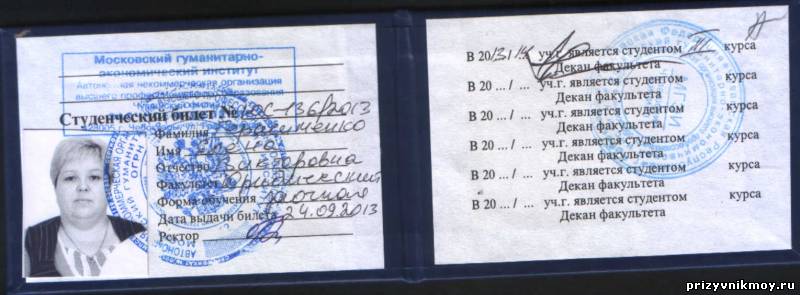 Московский гуманитарно-
экономический институт
Автономная некоммерческая организация
высшего профессионального образования
Студенческий билет № 136/2013
Фамилия Герасименко
Имя Елена
Отчество Викторовна
Факультет Юридический
Форма обучения заочная
Дата выдачи билета 24.09.2013
Ректор
В 2013/14 уч.г. является студентом III курса
Декан факультета
В 20 ... / ... уч.г. является студентом курса
Декан факультета
В 20 ... / ... уч.г. является студентом курса
Декан факультета
В 20 ... / ... уч.г. является студентом курса
Декан факультета
В 20 ... / ... уч.г. является студентом курса
Декан факультета
В 20 ... / ... уч.г. является студентом курса
Декан факультета
prizyvnikmoy.ru